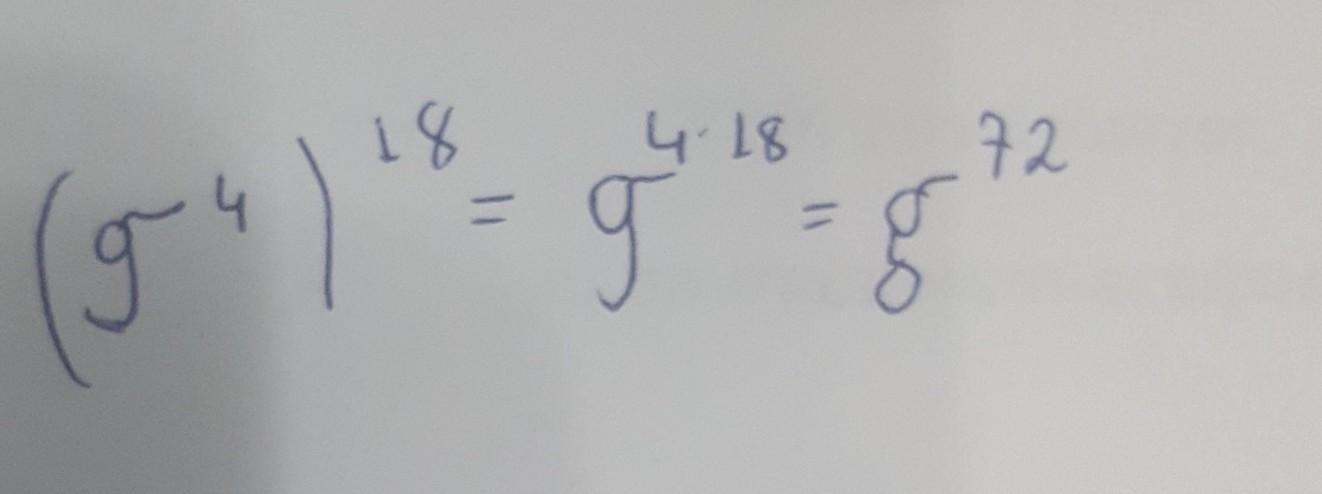 (g⁴)¹⁸ = g⁴·¹⁸ = g⁷²